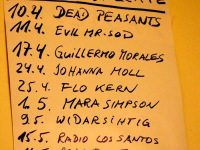 10.4. DEAD PEASANTS
11.4. EVIL MR. SOD
17.4. GUILLERMO MORALES
24.4. JOHANNA MOLL
25.4. FLO KERN
1.5. MARA SIMPSON
9.5. WIDARSICHTIG
15.5. RADIO LOS SANTOS